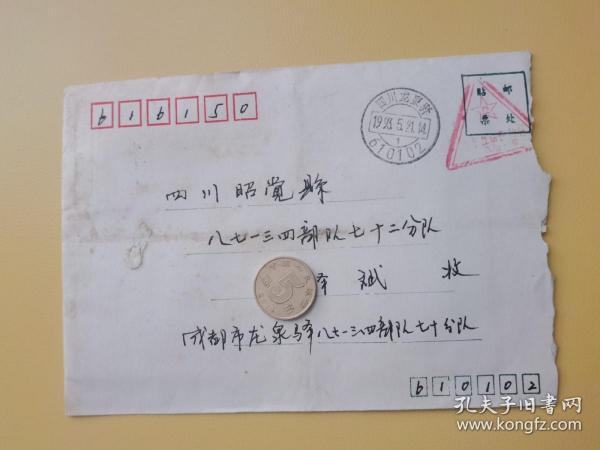 616150
四川龙泉驿
1993.5.21.14
1
610102
贴邮
票处
四川昭觉县
八七一三四部队七十二分队
泽斌 收
5
成都市龙泉驿八七一三四部队七十分队
610102
孔夫子旧书网
www.kongfz.com